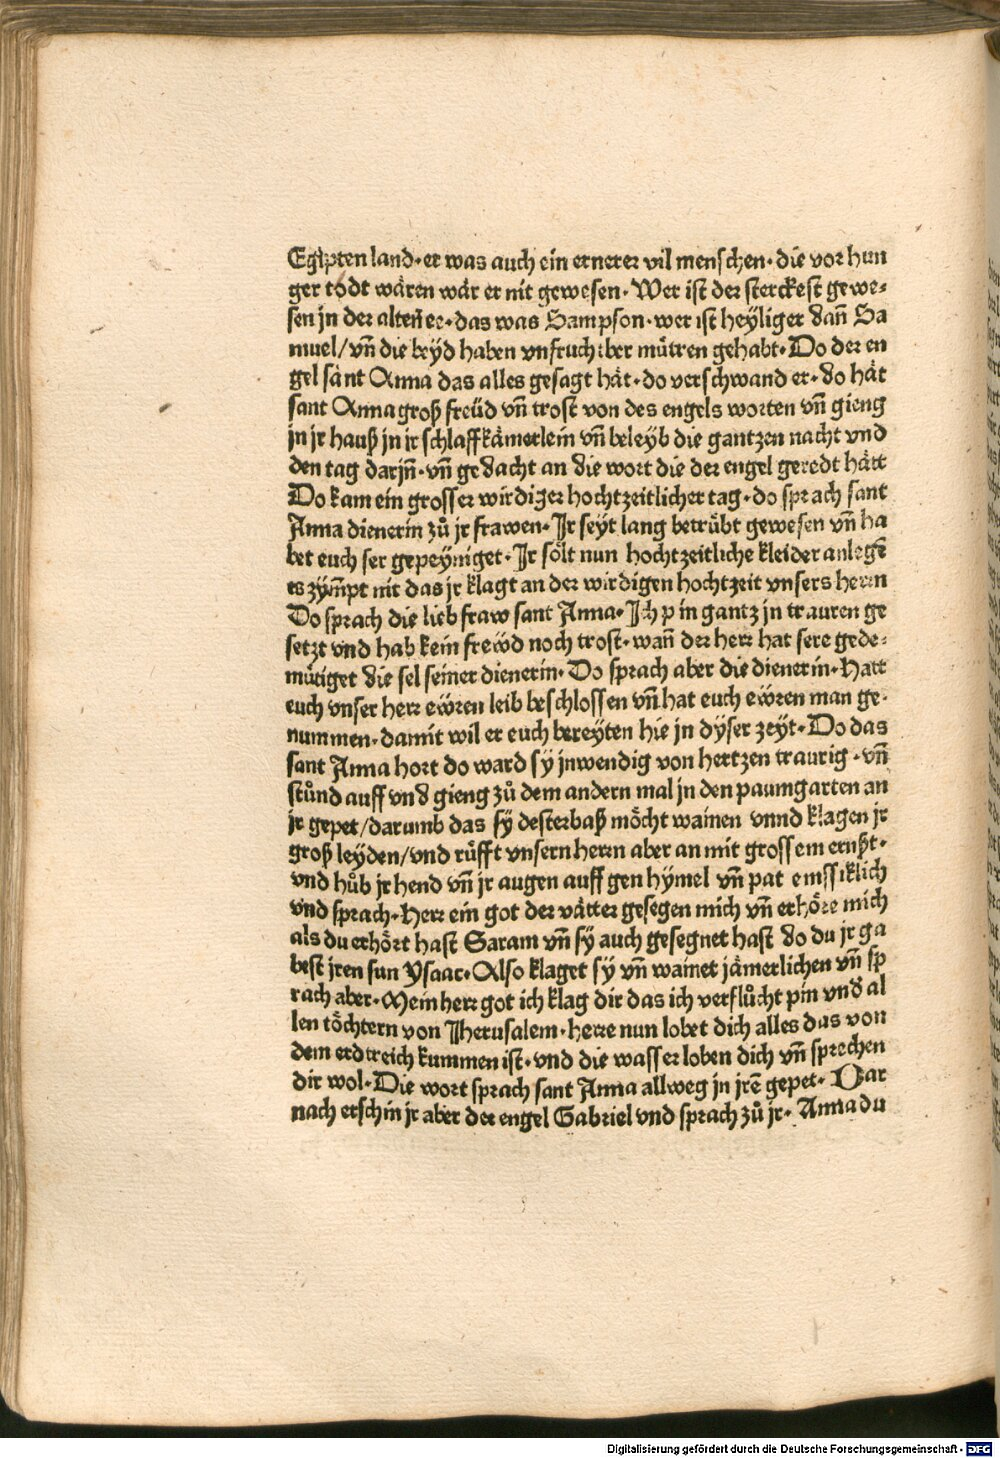 Egipten land· er was auch ein ernerer vil menschen· die vor hun
ger todt wären wär er nit gewesen· Wer ist der sterckest gewe-
sen jn der alten̄ ee· das was Sampson· wer ist heyliger dañ Sa
muel/ vñ die beyd haben vnfruchtber můtren gehabt· Do der en
gel sant Anna das alles gesagt hät· do verschwand er· do hät
sant Anna groß freüd vñ trost von des engels worten vñ gieng
jn jr hauß jn ir schlaffkämerlein vñ beleyb die gantzen nacht vnd
den tag darjñ· vñ gedacht an die wort die der engel geredt hätt
Do kam ein grosser wirdiger hochtzeitlicher tag· do sprach sant
Anna dienerin zů jr frawen· Ir seyt lang betrübt gewesen vñ ha
bet euch ser gepeyniget· Ir sölt nun hochtzeitliche kleider anlegē
es zym̄pt nit das jr klagt an der wirdigen hochtzeit vnsers herrn
Do sprach die lieb fraw sant Anna· Ich pin gantz jn trauren ge
setzt vnd hab kein frewd noch trost· wañ der herr hat sere gede-
mütiget die sel seiner dienerin· Do sprach aber die dienerin· Hatt
euch vnser herr ewren leib beschlossen vñ hat euch ewren man ge·
nummen· damit wil er euch bereyten hie jn dyser zeyt· Do das
sant Anna hort do ward sy jnwendig von hertzen traurig· vñ
stůnd auff vnd gieng zů dem andern mal jn den paumgarten an
jr gepet/ darumb das sy desterbaß möcht wainen vnnd klagen jr
groß leyden/ vnd rüfft vnsern herrn aber an mit grossem ernst·
vnd hůb jr hend vñ jr augen auff gen hymel vñ pat emssiklich
vnd sprach· Herr ein got der vätter gesegen mich vñ erhöre mich
als du erhört hast Saram vñ sy auch gesegnet hast do du jr ga
best jren sun Ysaac· Also klaget sy vñ wainet jämerlichen vñ sp
rach aber· Mein herr got ich klag dir das ich verflůcht pin vnd al
len töchtern von Jherusalem· herre nun lobet dich alles das von
dem erdtreich kummen ist· vnd die wasser loben dich vñ sprechen
dir wol· Die wort sprach sant Anna allweg jn jrē gepet· Dar
nach erschin jr aber der engel Gabriel vnd sprach zů jr· Anna du
Digitalisierung gefördert durch die Deutsche Forschungsgemeinschaft - DFG